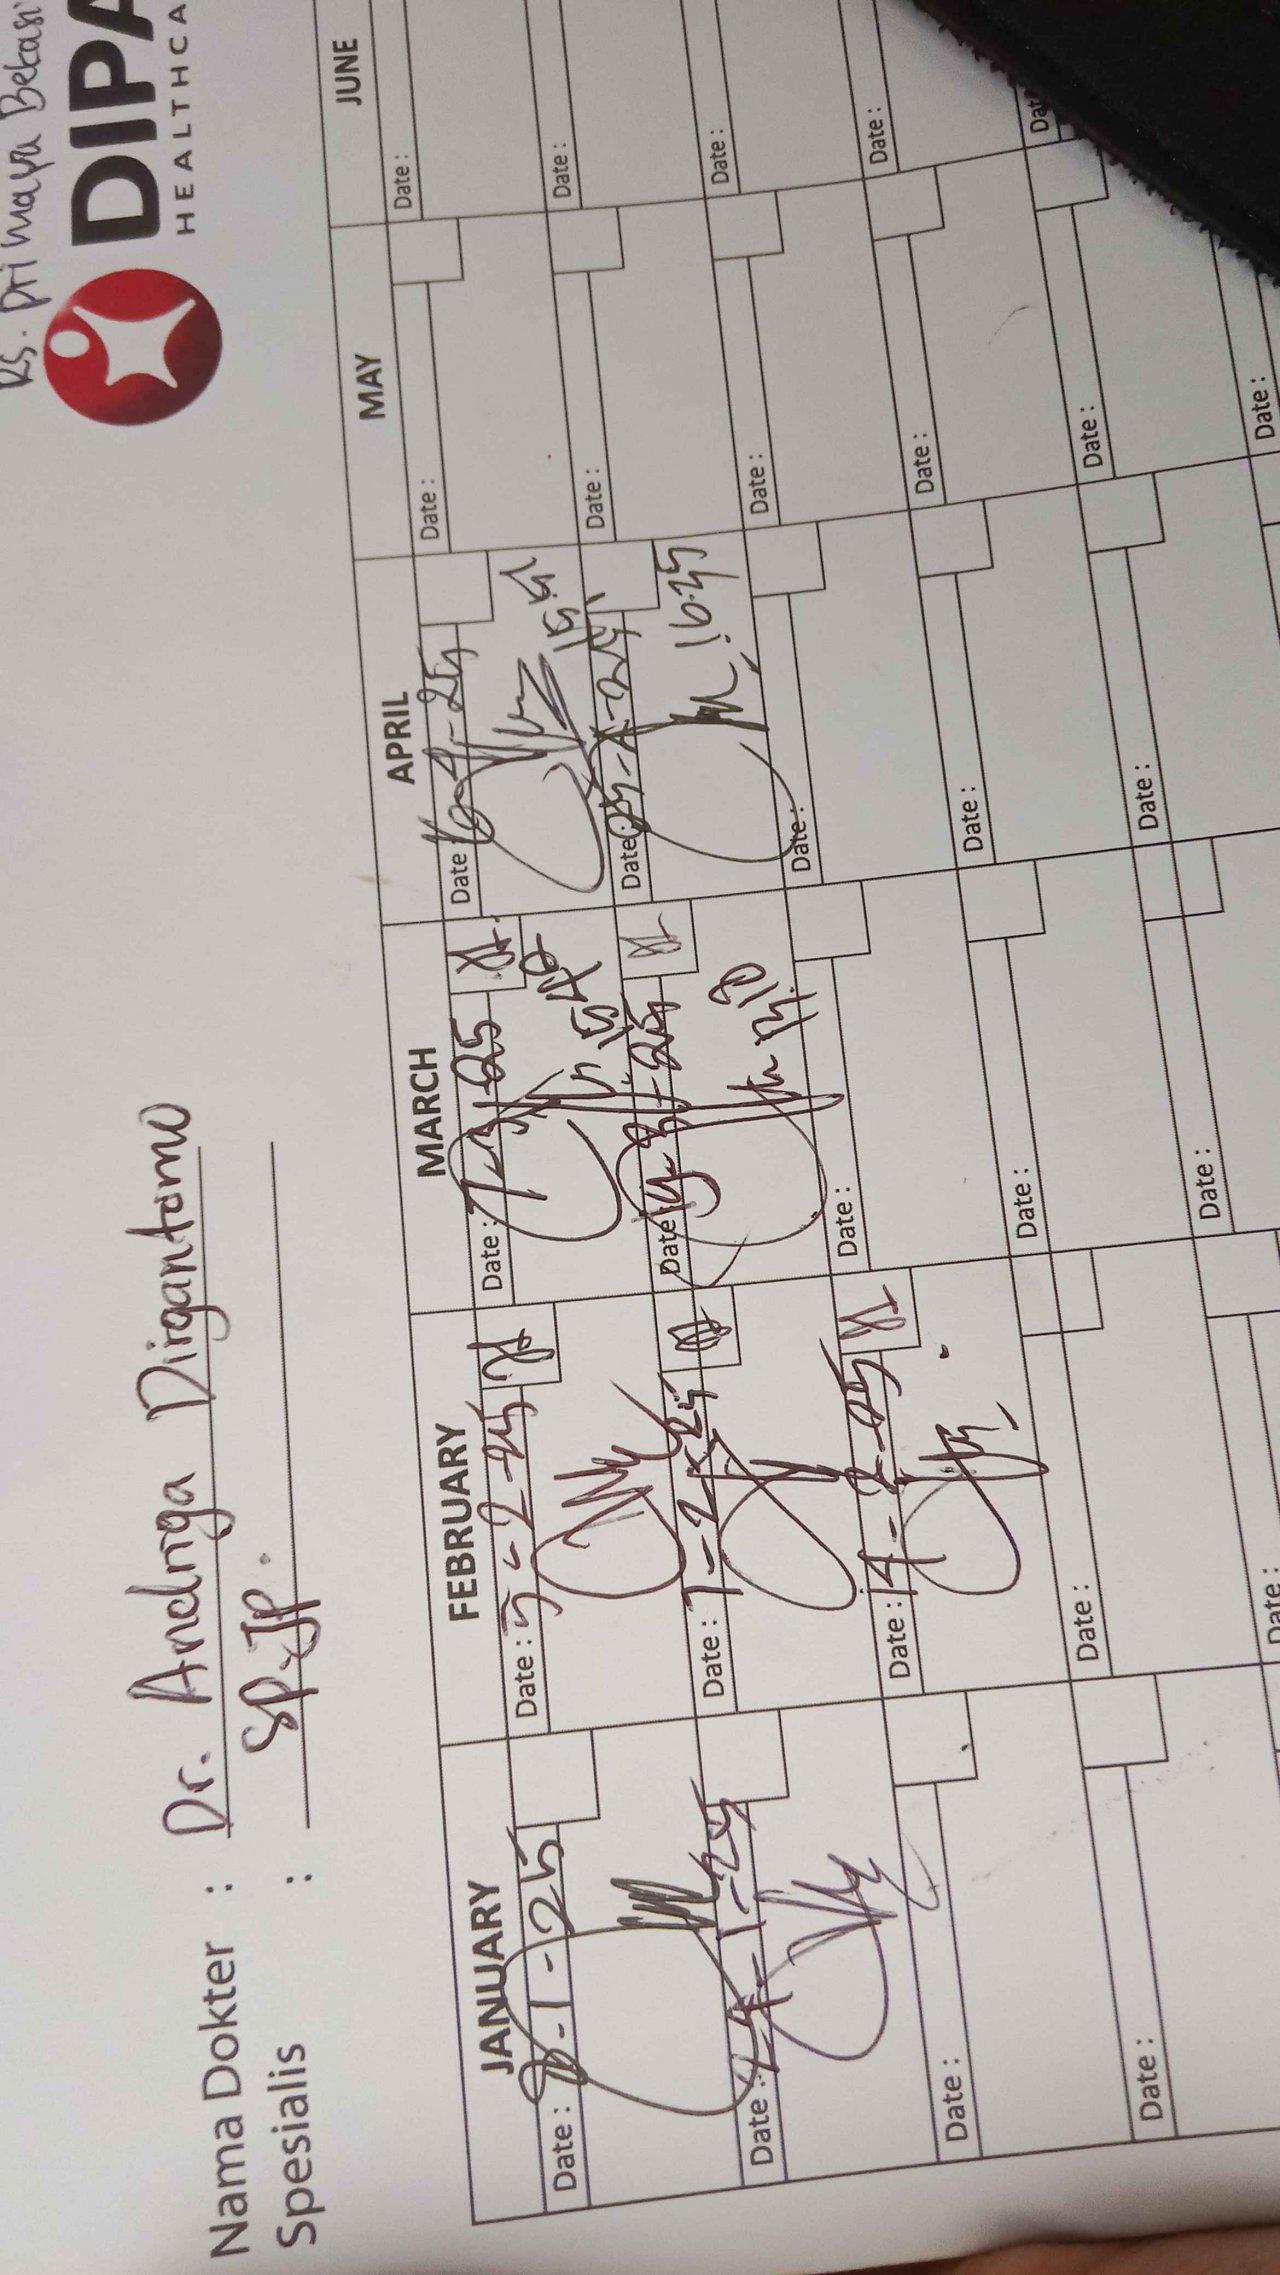 RS. Primaya Bekasi
DIPA
HEALTHCA
Nama Dokter : Dr. Andriga Dirgantomo
Spesialis : SP.JP.
JANUARY FEBRUARY MARCH APRIL MAY JUNE
Date : 8-1-25 Date : 5-2-25 Date : 7-3-25 Date : 16-4-25 Date : Date :
15.40
Date : 24-1-25 Date : 7-2-25 Date : 14-3-25 Date : Date : Date :
16.35
Date : Date : 14-2-25 Date : Date : Date : Date :
Date : Date : Date : Date : Date : Date :
Date : Date : Date : Date : Date
Date :